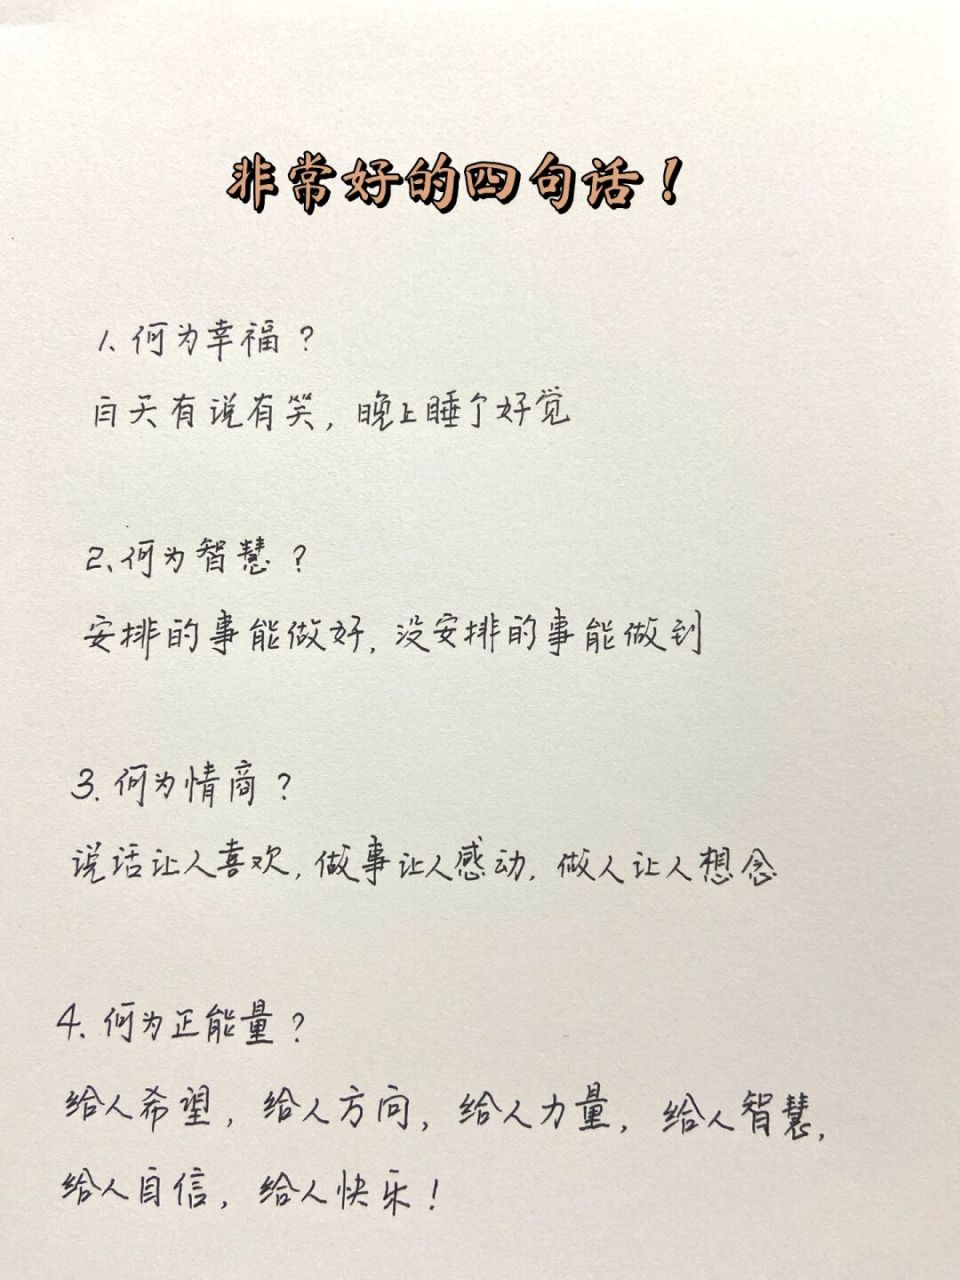 非常好的四句话！
1、何为幸福？
白天有说有笑，晚上睡个好觉
2、何为智慧？
安排的事能做好，没安排的事能做到
3、何为情商？
说话让人喜欢，做事让人感动，做人让人想念
4、何为正能量？
给人希望，给人方向，给人力量，给人智慧，
给人自信，给人快乐！